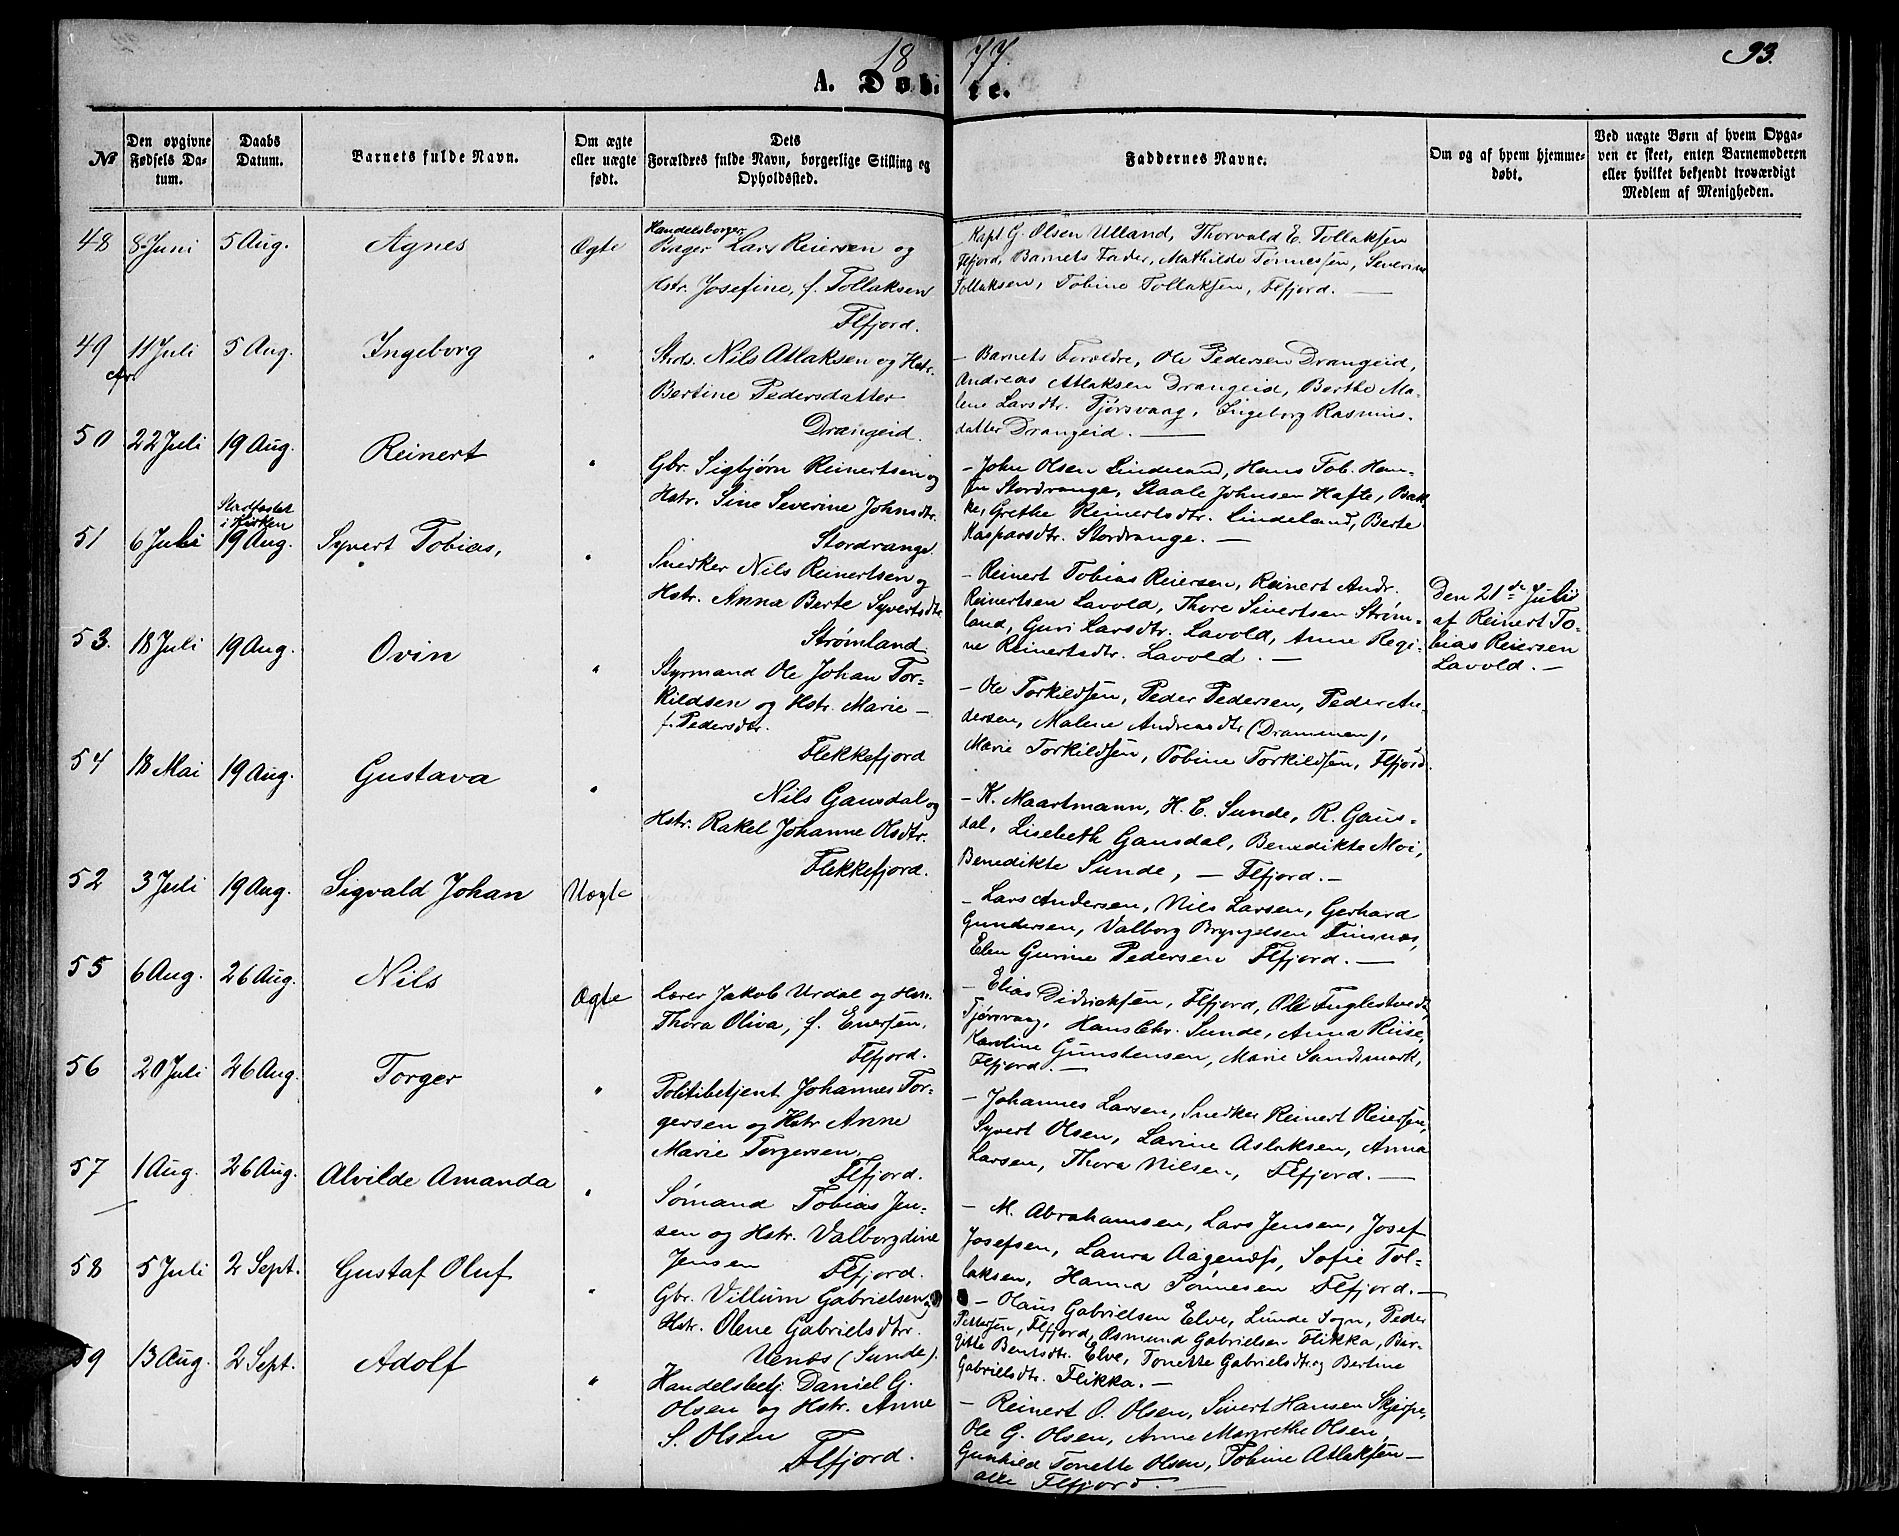 1877. 93.
A. Døbte.
No
Den opgivne Fødsels Datum.
Daabs Datum.
Barnets fulde Navn.
Om ægte eller uægte født.
Dets Forældres fulde Navn, borgerlige Stilling og Opholdssted.
Faddernes Navne.
Om og af hvem hjemmedøbt.
Ved uægte Børn af hvem Opgaven er skeet, enten Barnemoderen eller hvilket bekjendt troværdigt Medlem af Menigheden.
48 8 Juni 5 Aug. Agnes Ægte
Handelsborger
Lars Reiersen og
Hstr. Josefine, f. Tollaksen
Flfjord.
Kapt G. Olsen Ulland, Thorvald E. Tollaksen
Flfjord, Barnets Fader, Mathilde Tønnessen, Severine
Tollaksen, Tobine Tollaksen, Flfjord. —
49 11 Juli 5 Aug. Ingeborg "
Nils Atlaksen og Hstr.
Bertine Pedersdatter
Drangeid.
— Barnets Forældre, Ole Pedersen Drangeid,
Andreas Atlaksen Drangeid, Berthe Ma-
lene Larsdtr. Tjørsvaag, Ingeborg Rasmus-
datter Drangeid. —
50 22 Juli 19 Aug. Reinert "
Gbr. Sigbjørn Reinertsen og
Hstr. Sine Severine Johnsdtr.
Stordrange.
— John Olsen Lindeland, Hans Tob. Han-
sen Stordrange, Staale Johnsen Hafte, Bak-
ke, Grethe Reinertsdtr. Lindeland, Berte
Kasparsdtr. Stordrange. —
51 6 Juli Stadfæstet
i Kirken
19 Aug. Syvert Tobias, "
Snedker Nils Reinertsen og
Hstr. Anna Berte Syvertsdtr.
Strømland
— Reinert Tobias Reiersen, Reinert Andr.
Reinertsen Lavold, Thore Sivertsen Strøm-
land, Guri Larsdtr. Lavold, Anne Regi-
ne Reinertsdtr. Lavold. —
Den 21de Juli
af Reinert To-
bias Reiersen
Lavold. —
53. 18 Juli 19 Aug. Ovin "
Styrmand Ole Johan Tor-
kildsen og Hstr. Marie —
f. Pedersdtr.
Flekkefjord
— Ole Torkildsen, Peder Pedersen, Peder An-
dersen, Malene Andreasdtr (Drammen),
Marie Torkildsen, Tobine Torkildsen, Flfjord.
54 18 Mai 19 Aug. Gustava "
Nils Gausdal og
Hstr. Rakel Johanne Olsdtr.
Flekkefjord.
— K. Maartmann, H. C. Sunde, R. Gaus-
dal, Lisebeth Gausdal, Benedikte Moi,
Benedikte Sunde, — Flfjord. —
52 3 Juli 19 Aug. Sigvald Johan Uægte
— Lars Andersen, Nils Larsen, Gerhard
Gundersen, Valborg Bryngelsen Fuisnæs,
Elen Gurine Pedersen Flfjord. —
55 6 Aug. 26 Aug. Nils Ægte
Lærer Jakob Urdal og Hstr.
Thora Oliva, f. Enersen,
Flfjord.
— Elias Didricksen, Flfjord, Ole Fuglestvedt,
Tjørsvaag, Hans Chr. Sunde, Anna Riise,
Karoline Gunstensen, Marie Sandsmark,
Flfjord. —
56 20 Juli 26 Aug. Torger "
Politibetjent Johannes Tor-
gersen og Hstr Anne
Marie Torgersen,
Flfjord.
— Johannes Larsen, Snedker Reinert Reiersen,
Syvert Olsen, Lavine Aslaksen, Anna
Larsen, Thora Nilsen, Flfjord. —
57 1 Aug. 26 Aug. Alvilde Amanda "
Sømand Tobias Jen-
sen og Hstr. Valborgdine
Jensen Flfjord.
— M. Abrahamsen, Lars Jensen, Josef
Josefsen, Laura Aagendss, Sofie Tol-
laksen, Hanna Tønnesen Flfjord. —
58 5 Juli 2 Sept. Gustaf Oluf "
Gbr. Villum Gabrielsen og
Hstr. Olene Gabrielsdtr.
Uenæs (Sunde).
— Olaus Gabrielsen Elve, Lunde Sogn, Peder
Pettersen, Flfjord, Osmund Gabrielsen Flikka, Bir-
gitte Bentsdtr. Elve, Tonette Gabrielsdtr. og Bertine
Gabrielsdtr. Flikka. —
59 13 Aug. 2 Sept. Adolf "
Handelsbetj. Daniel G.
Olsen og Hstr. Anne
S. Olsen
Flfjord.
— Reinert O. Olsen, Sivert Hansen Skjerpe,
Ole G. Olsen, Anne Margrethe Olsen,
Gunhild Tonette Olsen, Tobine Atlaksen —
alle Flfjord. —